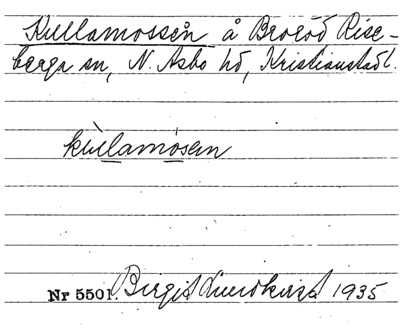 Kullamossen å Broröd Rise-
berga sn, N. Åsbo hd, Kristianstad l.
kullamosen
Nr 5501. Birgit Lundkvist 1935